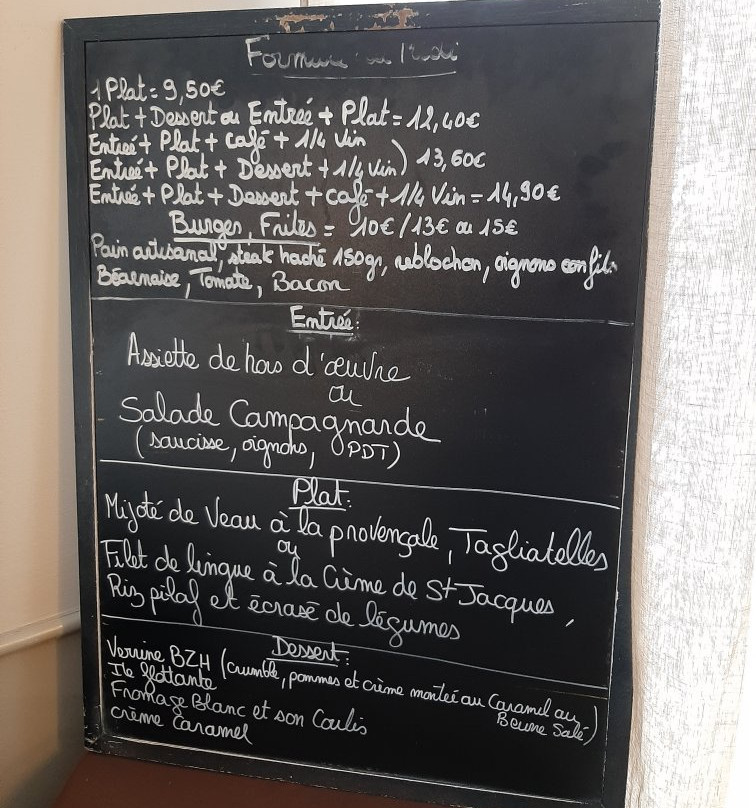 Formule du Midi
1 Plat = 9,50€
Plat + Dessert ou Entrée + Plat = 12,40€
Entrée + Plat + café + 1/4 Vin
Entrée + Plat + Dessert + 1/4 Vin) 13,60€
Entrée + Plat + Dessert + café + 1/4 Vin = 14,90€
Burger, Frites = 10€ / 13€ ou 15€
Pain artisanal, steak haché 150gr, reblochon, oignons confits
Béarnaise, Tomate, Bacon
Entrée:
Assiette de hors d'œuvre
ou
Salade Campagnarde
(saucisse, oignons, PDT)
Plat:
Mijoté de Veau à la provençale, Tagliatelles
ou
Filet de lingue à la Crème de St Jacques,
Riz pilaf et écrasé de légumes
Dessert:
Verrine BZH (crumble, pommes et crème montée au Caramel au
Beurre Salé)
Ile flottante
Fromage Blanc et son Coulis
crème Caramel